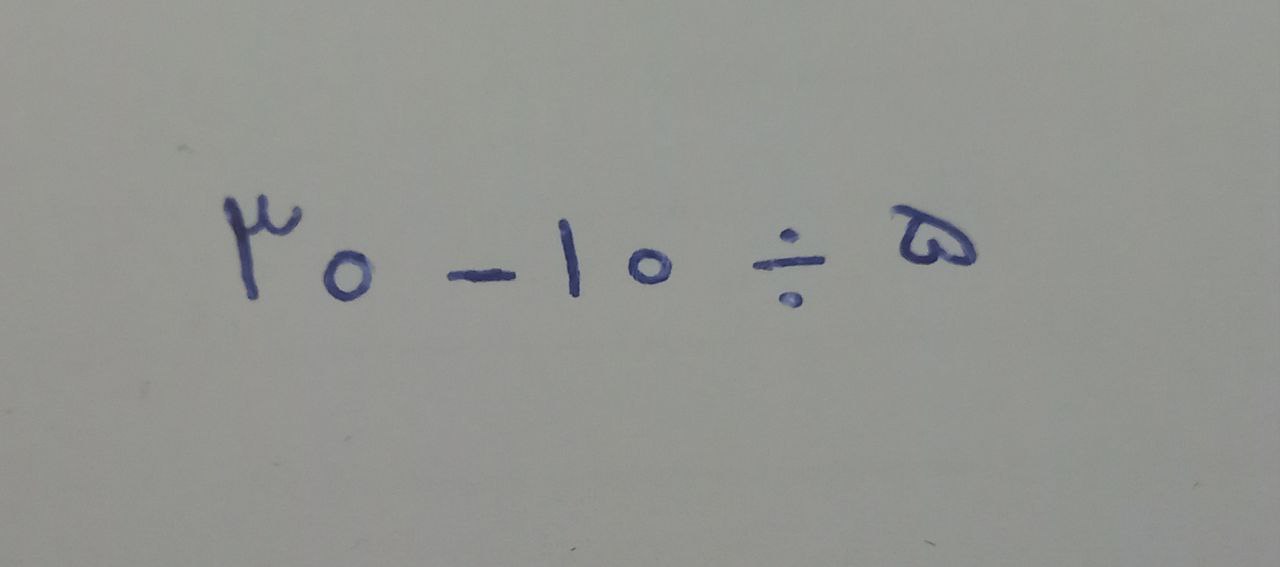 ۳۰ - ۱۰ ÷ ۵